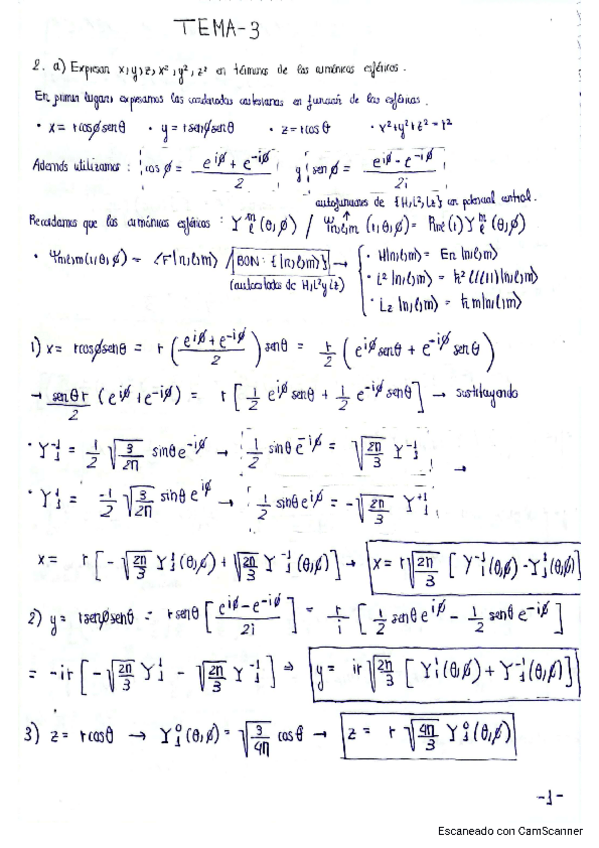 TEMA-3
2. a) Expresar x,y,z,x²,y²,z² en términos de los armónicos esféricos.
En primer lugar, expresamos las coordenadas cartesianas en función de las esféricas.
• x = rcosφsenθ • y = rsenφsenθ • z = rcosθ • x²+y²+z² = r²
Además utilizamos: cosφ = (e^{iφ} + e^{-iφ})/2 y senφ = (e^{iφ} - e^{-iφ})/2i
autofunciones de {H,L²,Lz} en potencial central.
Recordamos que los armónicos esféricos: Y_l^m(θ,φ) / Ψ_{n,l,m}(r,θ,φ) = R_{nl}(r) Y_l^m(θ,φ)
• Ψ_{nlm}(r,θ,φ) = ⟨r|n,l,m⟩ / BON: {|n,l,m⟩} → • H|n,l,m⟩ = En|n,l,m⟩
(autoestados de H,L² y Lz) • L²|n,l,m⟩ = ħ² l(l+1)|n,l,m⟩
• Lz |n,l,m⟩ = ħm|n,l,m⟩
1) x = rcosφsenθ = r ((e^{iφ} + e^{-iφ})/2) senθ = r/2 (e^{iφ} senθ + e^{-iφ} senθ)
→ senθ r/2 (e^{iφ} + e^{-iφ}) = r [1/2 e^{iφ} senθ + 1/2 e^{-iφ} senθ] → sustituyendo
• Y_1^{-1} = 1/2 √(3/2π) sinθ e^{-iφ} → 1/2 sinθ e^{-iφ} = √(2π/3) Y_1^{-1} →
• Y_1^1 = -1/2 √(3/2π) sinθ e^{iφ} → 1/2 sinθ e^{iφ} = -√(2π/3) Y_1^{+1}
x = r [-√(2π/3) Y_1^1(θ,φ) + √(2π/3) Y_1^{-1}(θ,φ)] → x = r√(2π/3) [Y_1^{-1}(θ,φ) - Y_1^1(θ,φ)]
2) y = rsenφsenθ = rsenθ [(e^{iφ} - e^{-iφ})/2i] = r/i [1/2 senθ e^{iφ} - 1/2 senθ e^{-iφ}]
= -ir [-√(2π/3) Y_1^1 - √(2π/3) Y_1^{-1}] → y = ir √(2π/3) [Y_1^1(θ,φ) + Y_1^{-1}(θ,φ)]
3) z = rcosθ → Y_1^0(θ,φ) = √(3/4π) cosθ → z = r √(4π/3) Y_1^0(θ,φ)
-1-
Escaneado con CamScanner